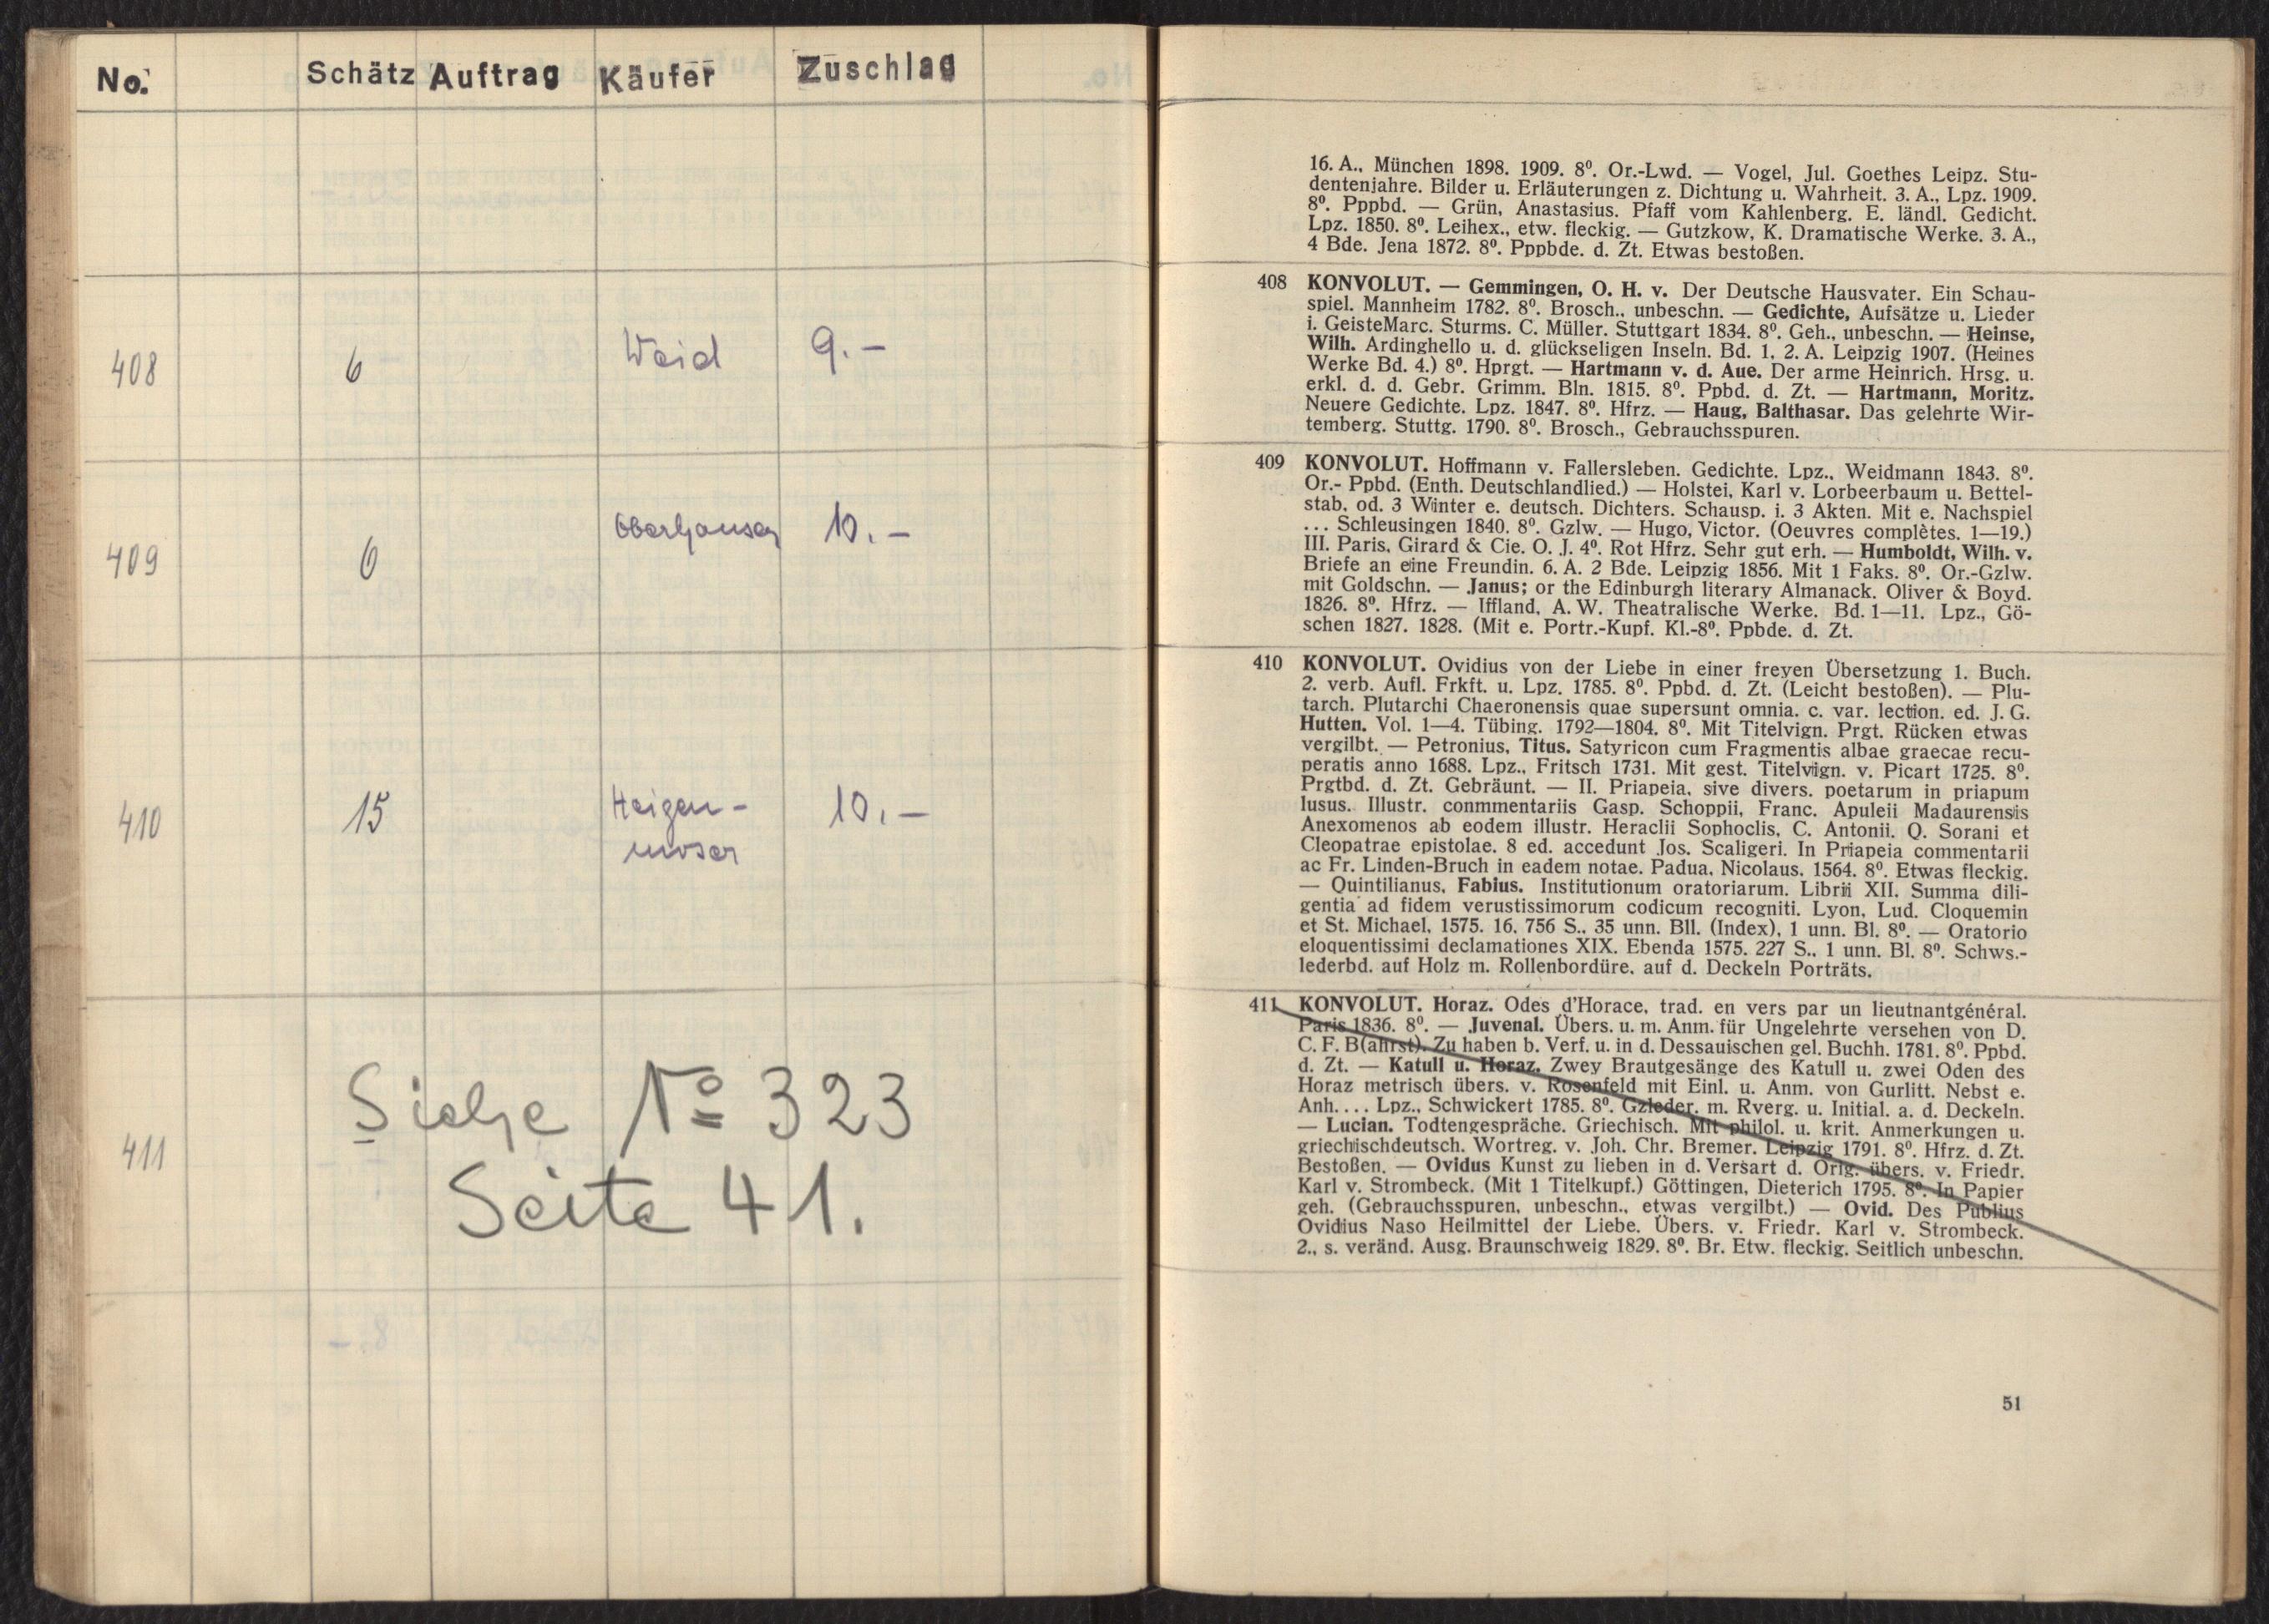 No. Schätz Auftrag Käufer Zuschlag
408 6 Weid 9.-
409 6 Oberhauser 10.-
410 15 Heigen-
moser 10.-
411 Siehe No 323
Seite 41.
16. A., München 1898. 1909. 8º. Or.-Lwd. — Vogel, Jul. Goethes Leipz. Stu-
dentenjahre. Bilder u. Erläuterungen z. Dichtung u. Wahrheit. 3. A., Lpz. 1909.
8º. Pppbd. — Grün, Anastasius. Pfaff vom Kahlenberg. E. ländl. Gedicht.
Lpz. 1850. 8º. Leihex., etw. fleckig. — Gutzkow, K. Dramatische Werke. 3. A.,
4 Bde. Jena 1872. 8º. Pppbde. d. Zt. Etwas bestoßen.
408 KONVOLUT. — Gemmingen, O. H. v. Der Deutsche Hausvater. Ein Schau-
spiel. Mannheim 1782. 8º. Brosch., unbeschn. — Gedichte, Aufsätze u. Lieder
i. GeisteMarc. Sturms. C. Müller. Stuttgart 1834. 8º. Geh., unbeschn. — Heinse,
Wilh. Ardinghello u. d. glückseligen Inseln. Bd. 1, 2. A. Leipzig 1907. (Heines
Werke Bd. 4.) 8º. Hprgt. — Hartmann v. d. Aue. Der arme Heinrich. Hrsg. u.
erkl. d. d. Gebr. Grimm. Bln. 1815. 8º. Ppbd. d. Zt. — Hartmann, Moritz.
Neuere Gedichte. Lpz. 1847. 8º. Hfrz. — Haug, Balthasar. Das gelehrte Wir-
temberg. Stuttg. 1790. 8º. Brosch., Gebrauchsspuren.
409 KONVOLUT. Hoffmann v. Fallersleben. Gedichte. Lpz., Weidmann 1843. 8º.
Or.- Ppbd. (Enth. Deutschlandlied.) — Holstei, Karl v. Lorbeerbaum u. Bettel-
stab, od. 3 Winter e. deutsch. Dichters. Schausp. i. 3 Akten. Mit e. Nachspiel
... Schleusingen 1840. 8º. Gzlw. — Hugo, Victor. (Oeuvres complètes. 1—19.)
III. Paris, Girard & Cie. O. J. 4º. Rot Hfrz. Sehr gut erh. — Humboldt, Wilh. v.
Briefe an eine Freundin. 6. A. 2 Bde. Leipzig 1856. Mit 1 Faks. 8º. Or.-Gzlw.
mit Goldschn. — Janus; or the Edinburgh literary Almanack. Oliver & Boyd.
1826. 8º. Hfrz. — Iffland, A. W. Theatralische Werke. Bd. 1—11. Lpz., Gö-
schen 1827. 1828. (Mit e. Portr.-Kupf. Kl.-8º. Ppbde. d. Zt.
410 KONVOLUT. Ovidius von der Liebe in einer freyen Übersetzung 1. Buch.
2. verb. Aufl. Frkft. u. Lpz. 1785. 8º. Ppbd. d. Zt. (Leicht bestoßen). — Plu-
tarch. Plutarchi Chaeronensis quae supersunt omnia. c. var. lection. ed. J. G.
Hutten. Vol. 1—4. Tübing. 1792—1804. 8º. Mit Titelvign. Prgt. Rücken etwas
vergilbt. — Petronius, Titus. Satyricon cum Fragmentis albae graecae recu-
peratis anno 1688. Lpz., Fritsch 1731. Mit gest. Titelvign. v. Picart 1725. 8º.
Prgtbd. d. Zt. Gebräunt. — II. Priapeia, sive divers. poetarum in priapum
lusus. Illustr. conmmentariis Gasp. Schoppii, Franc. Apuleii Madaurensis
Anexomenos ab eodem illustr. Heraclii Sophoclis, C. Antonii. Q. Sorani et
Cleopatrae epistolae. 8 ed. accedunt Jos. Scaligeri. In Priapeia commentarii
ac Fr. Linden-Bruch in eadem notae. Padua, Nicolaus, 1564. 8º. Etwas fleckig.
— Quintilianus, Fabius. Institutionum oratoriarum. Librii XII. Summa dili-
gentia ad fidem verustissimorum codicum recogniti. Lyon, Lud. Cloquemin
et St. Michael, 1575. 16, 756 S., 35 unn. Bll. (Index), 1 unn. Bl. 8º. — Oratorio
eloquentissimi declamationes XIX. Ebenda 1575. 227 S., 1 unn. Bl. 8º. Schws.-
lederbd. auf Holz m. Rollenbordüre, auf d. Deckeln Porträts.
411 KONVOLUT. Horaz. Odes d'Horace, trad. en vers par un lieutnantgénéral.
Paris 1836. 8º. — Juvenal. Übers. u. m. Anm. für Ungelehrte versehen von D.
C. F. B(ahrst). Zu haben b. Verf. u. in d. Dessauischen gel. Buchh. 1781. 8º. Ppbd.
d. Zt. — Katull u. Horaz. Zwey Brautgesänge des Katull u. zwei Oden des
Horaz metrisch übers. v. Rosenfeld mit Einl. u. Anm. von Gurlitt. Nebst e.
Anh.... Lpz., Schwickert 1785. 8º. Gzleder. m. Rverg. u. Initial. a. d. Deckeln.
— Lucian. Todtengespräche. Griechisch. Mit philol. u. krit. Anmerkungen u.
griechischdeutsch. Wortreg. v. Joh. Chr. Bremer. Leipzig 1791. 8º. Hfrz. d. Zt.
Bestoßen. — Ovidus Kunst zu lieben in d. Versart d. Orig. übers. v. Friedr.
Karl v. Strombeck. (Mit 1 Titelkupf.) Göttingen, Dieterich 1795. 8º. In Papier
geh. (Gebrauchsspuren, unbeschn., etwas vergilbt.) — Ovid. Des Publius
Ovidius Naso Heilmittel der Liebe. Übers. v. Friedr. Karl v. Strombeck.
2., s. veränd. Ausg. Braunschweig 1829. 8º. Br. Etw. fleckig. Seitlich unbeschn.
51